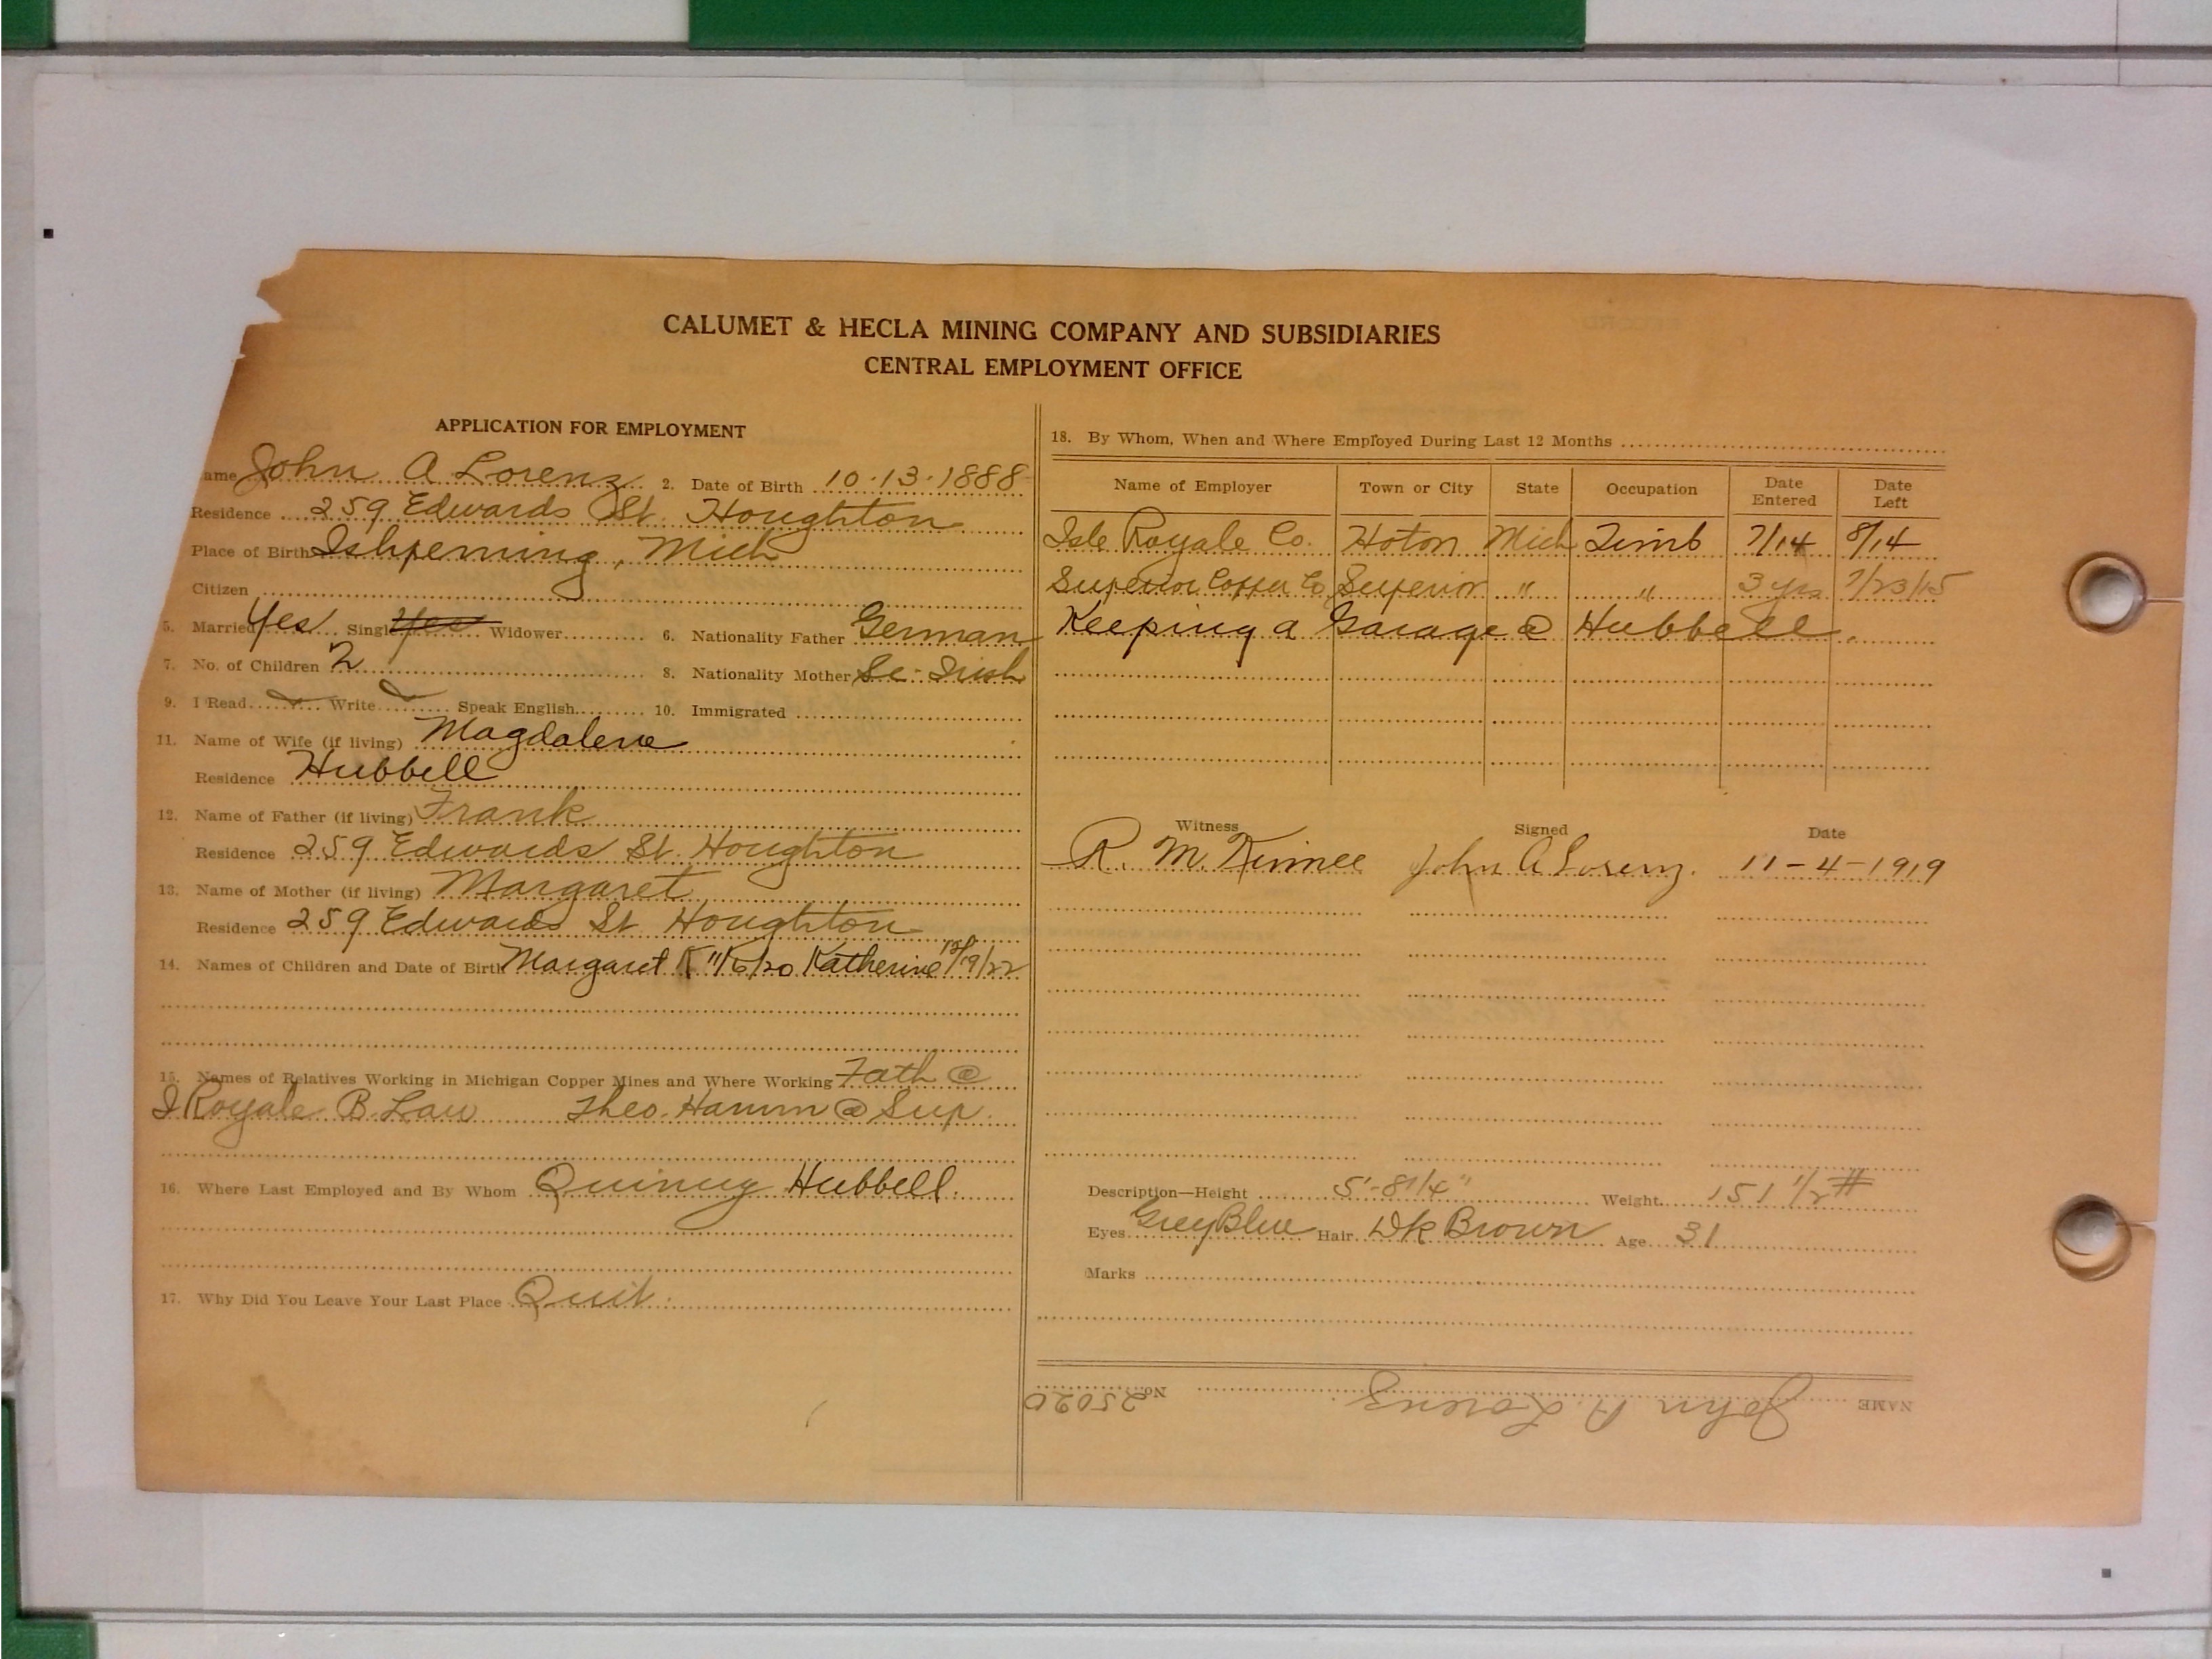 CALUMET & HECLA MINING COMPANY AND SUBSIDIARIES
CENTRAL EMPLOYMENT OFFICE
APPLICATION FOR EMPLOYMENT
ame John A Lorenz 2. Date of Birth 10-13-1888
Residence 259 Edwards St. Houghton
Place of Birth Ishpeming, Mich
Citizen
5. Married Yes Single Yes Widower 6. Nationality Father German
7. No. of Children 2 8. Nationality Mother Sc-Irish
9. I Read Write Speak English 10. Immigrated
11. Name of Wife (if living) Magdalene
Residence Hubbell
12. Name of Father (if living) Frank
Residence 259 Edwards St. Houghton
13. Name of Mother (if living) Margaret
Residence 259 Edwards St Houghton
14. Names of Children and Date of Birth Margaret K 11/6/20 Katherine 12/19/22
15. Names of Relatives Working in Michigan Copper Mines and Where Working Fath @
I Royale B. Law Theo. Hamm @ Sup.
16. Where Last Employed and By Whom Quincy Hubbell.
17. Why Did You Leave Your Last Place Quit.
18. By Whom, When and Where Employed During Last 12 Months
Name of Employer Town or City State Occupation Date Entered Date Left
Isle Royale Co. Hoton Mich Timb 7/14 8/14
Superior Copper Co Superior " " 3 yrs 7/23/15
Keeping a Garage @ Hubbell.
Witness Signed Date
R. M. John A Lorenz. 11-4-1919
Description—Height 5'-8 1/4" Weight 151 1/2 #
Eyes Grey Blue Hair Dk Brown Age 31
Marks
NAME John A. Lorenz. No. 25020